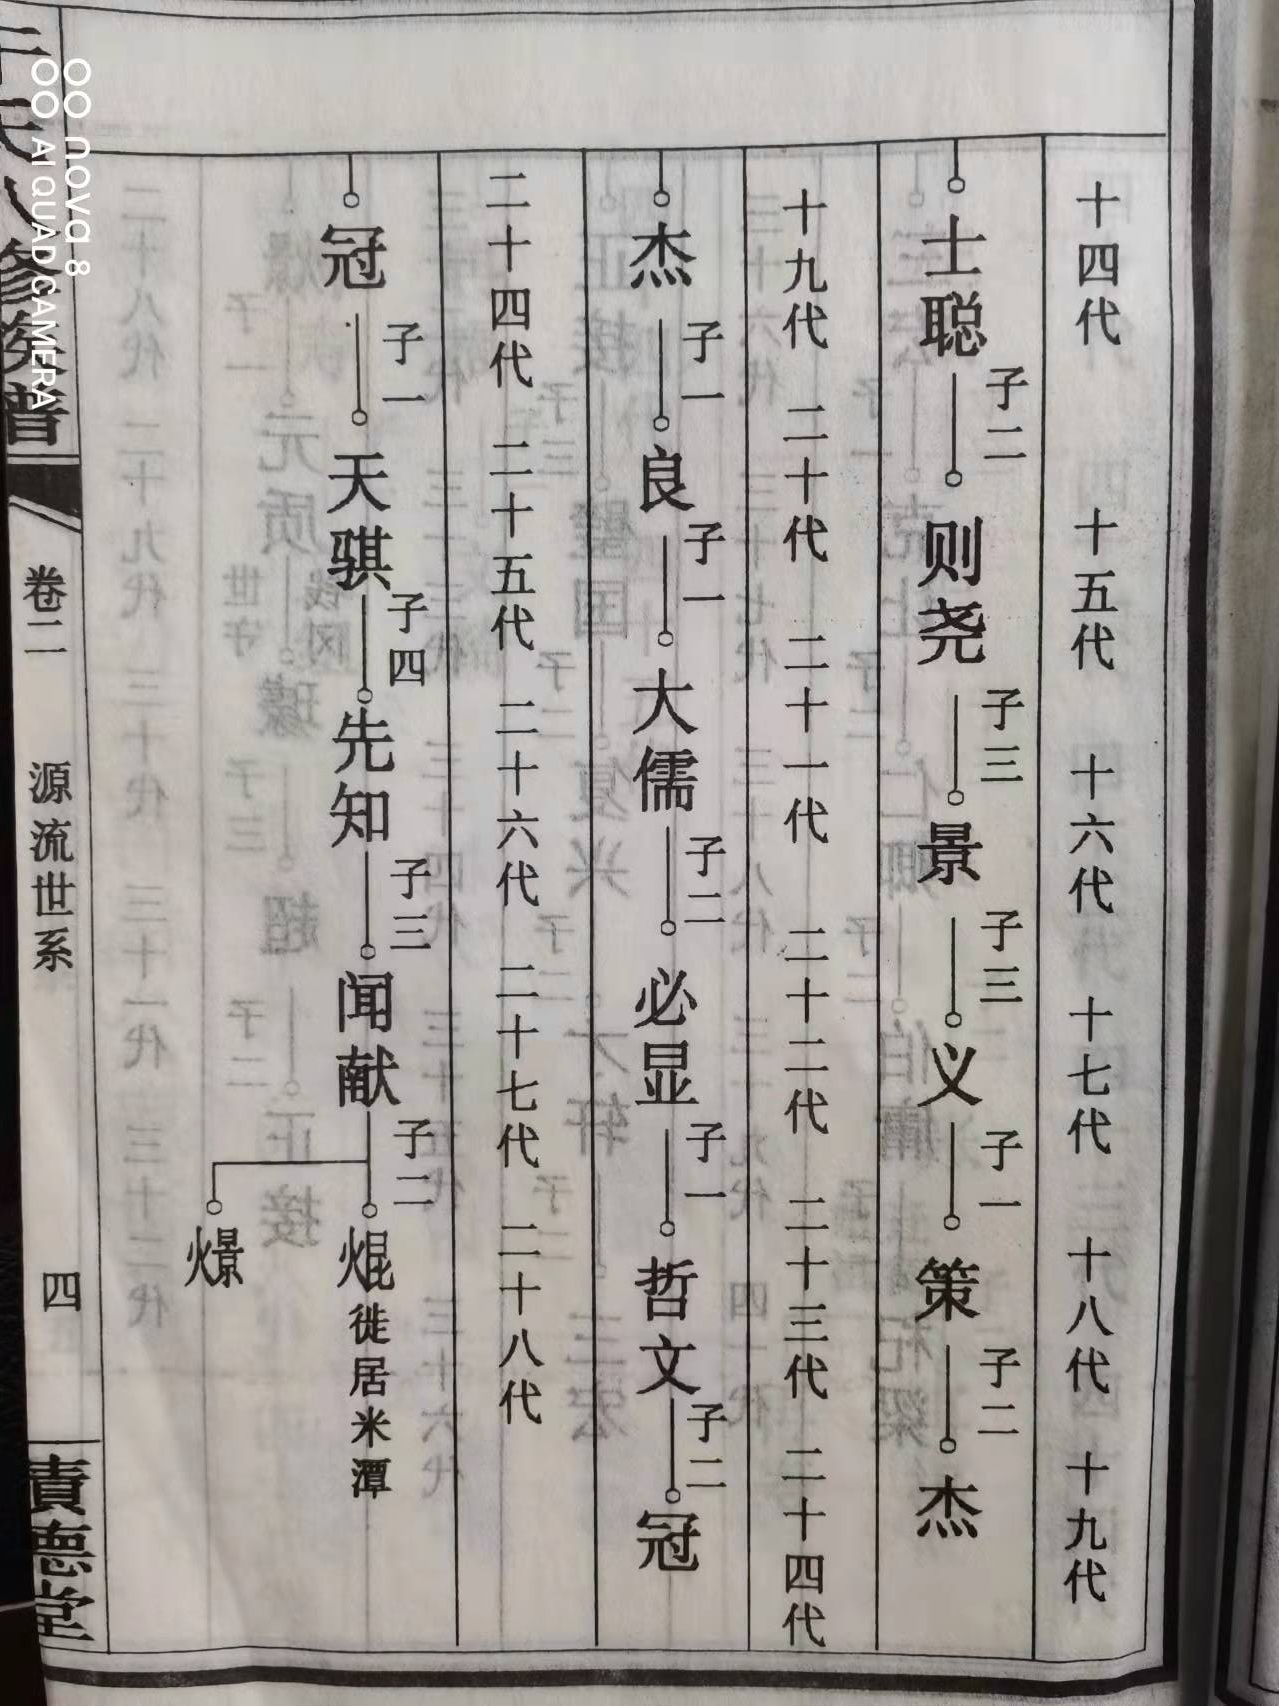 十四代 十五代 十六代 十七代 十八代 十九代
士聪 子二 则尧 子三 景 子三 义 子一 策 子二 杰
十九代 二十代 二十一代 二十二代 二十三代 二十四代
杰 子一 良 子一 大儒 子二 必显 子一 哲文 子二 冠
二十四代 二十五代 二十六代 二十七代 二十八代
冠 子一 天骐 子四 先知 子三 闻献 子二 焜 徙居米潭
㬌
卷二 源流世系 四
nova 8
AI QUAD CAMERA